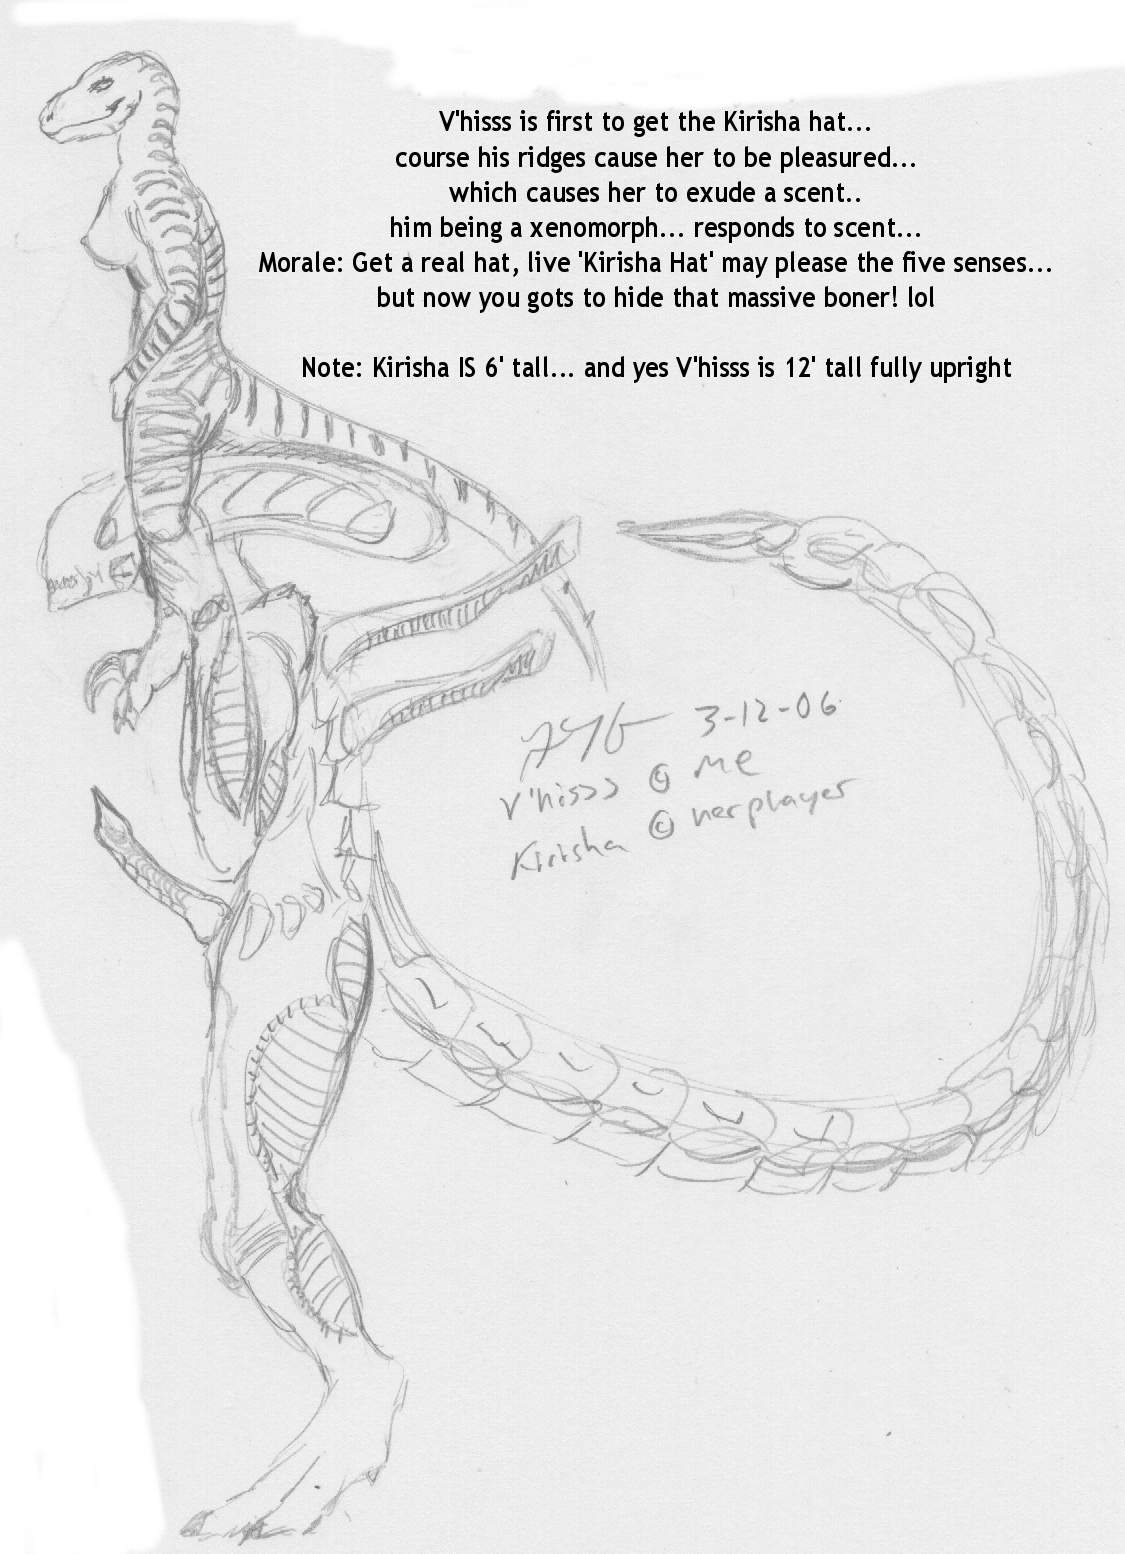 V'hisss is first to get the Kirisha hat...
course his ridges cause her to be pleasured...
which causes her to exude a scent..
him being a xenomorph... responds to scent...
Morale: Get a real hat, live 'Kirisha Hat' may please the five senses...
but now you gots to hide that massive boner! lol
Note: Kirisha IS 6' tall... and yes V'hisss is 12' tall fully upright
3-12-06
V'hisss © Me
Kirisha © her player